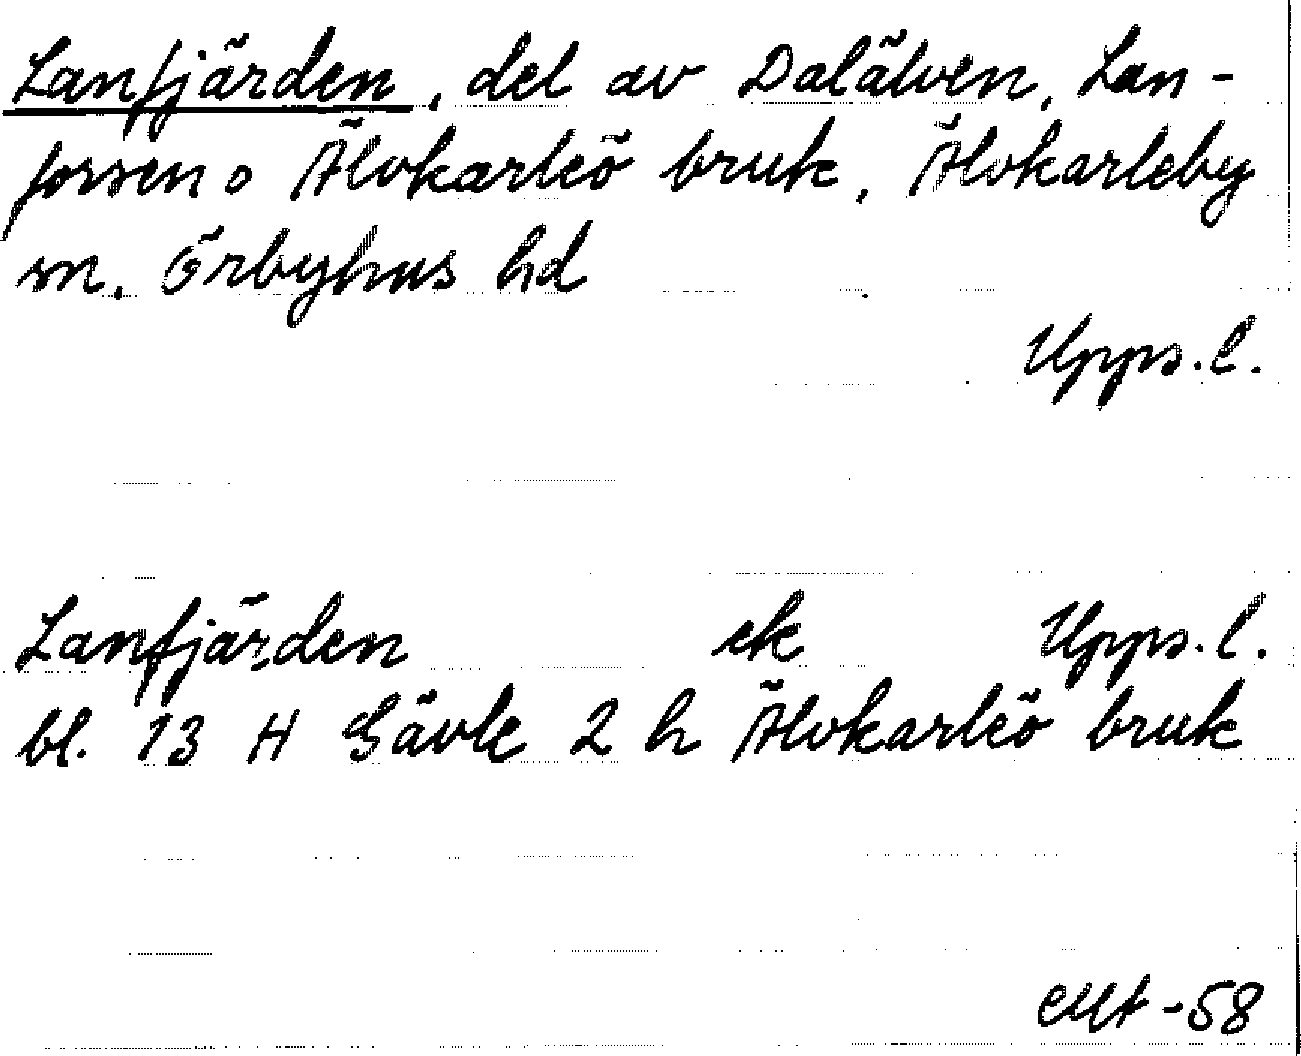 Lanfjärden, del av Dalälven, Lan-
forsen o Älvkarleö bruk, Älvkarleby
sn. Örbyhus hd
Upps. l.
Lanfjärden ek Upps. l.
bl. 13 H Gävle 2 h Älvkarleö bruk
-58